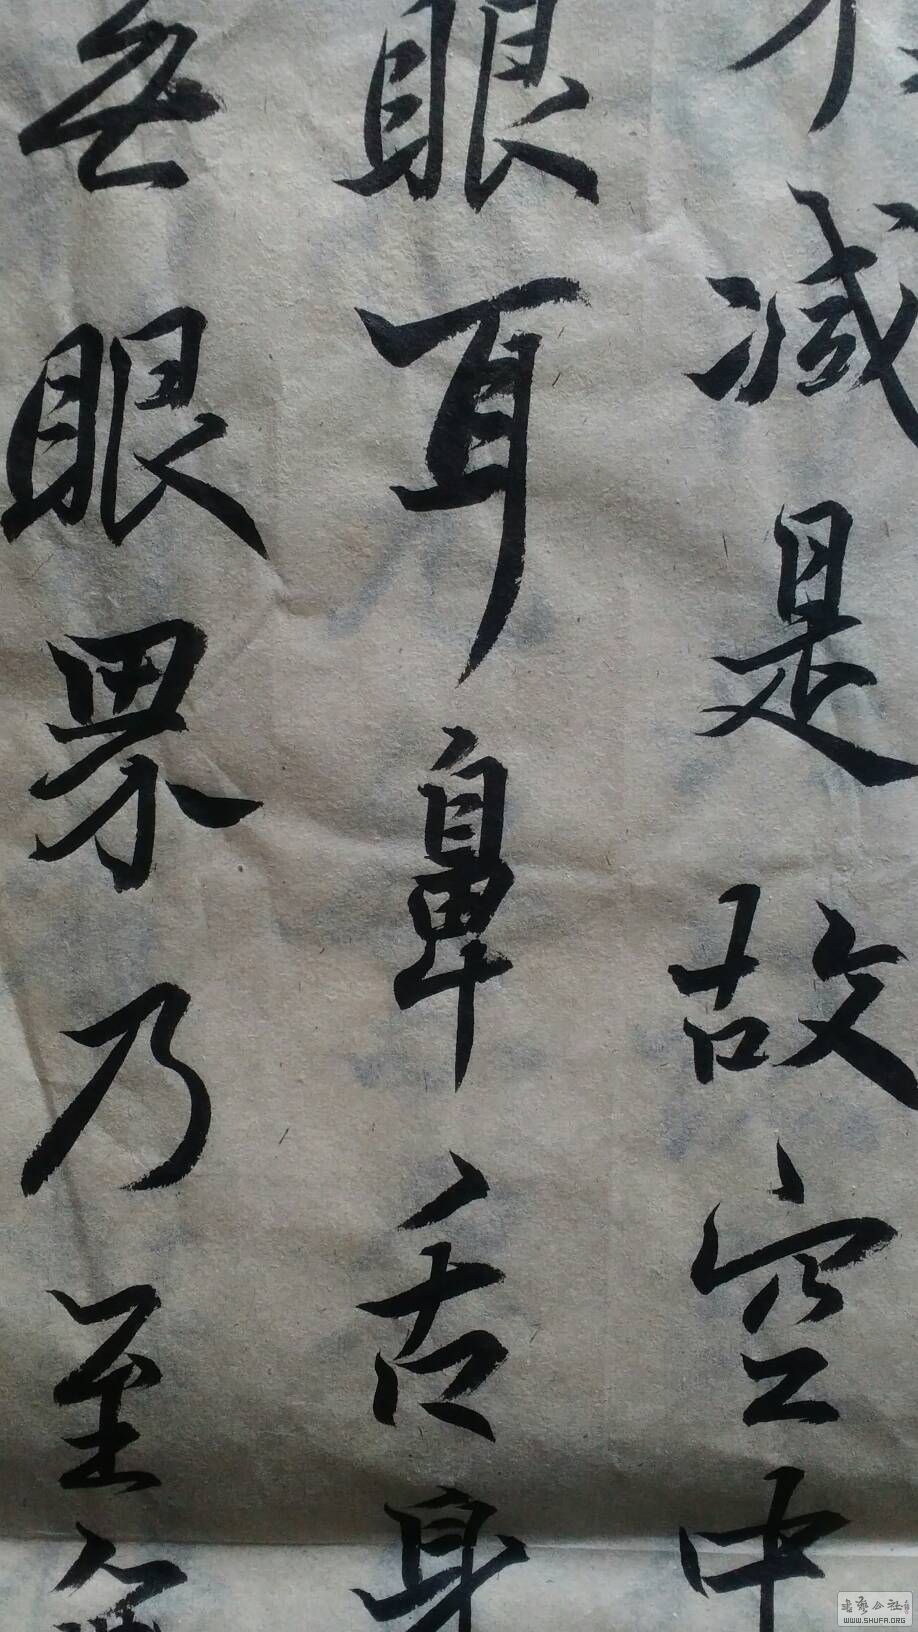 減是故空中
眼耳鼻舌身
無眼界乃至無
書藝公社
WWW.SHUFA.ORG